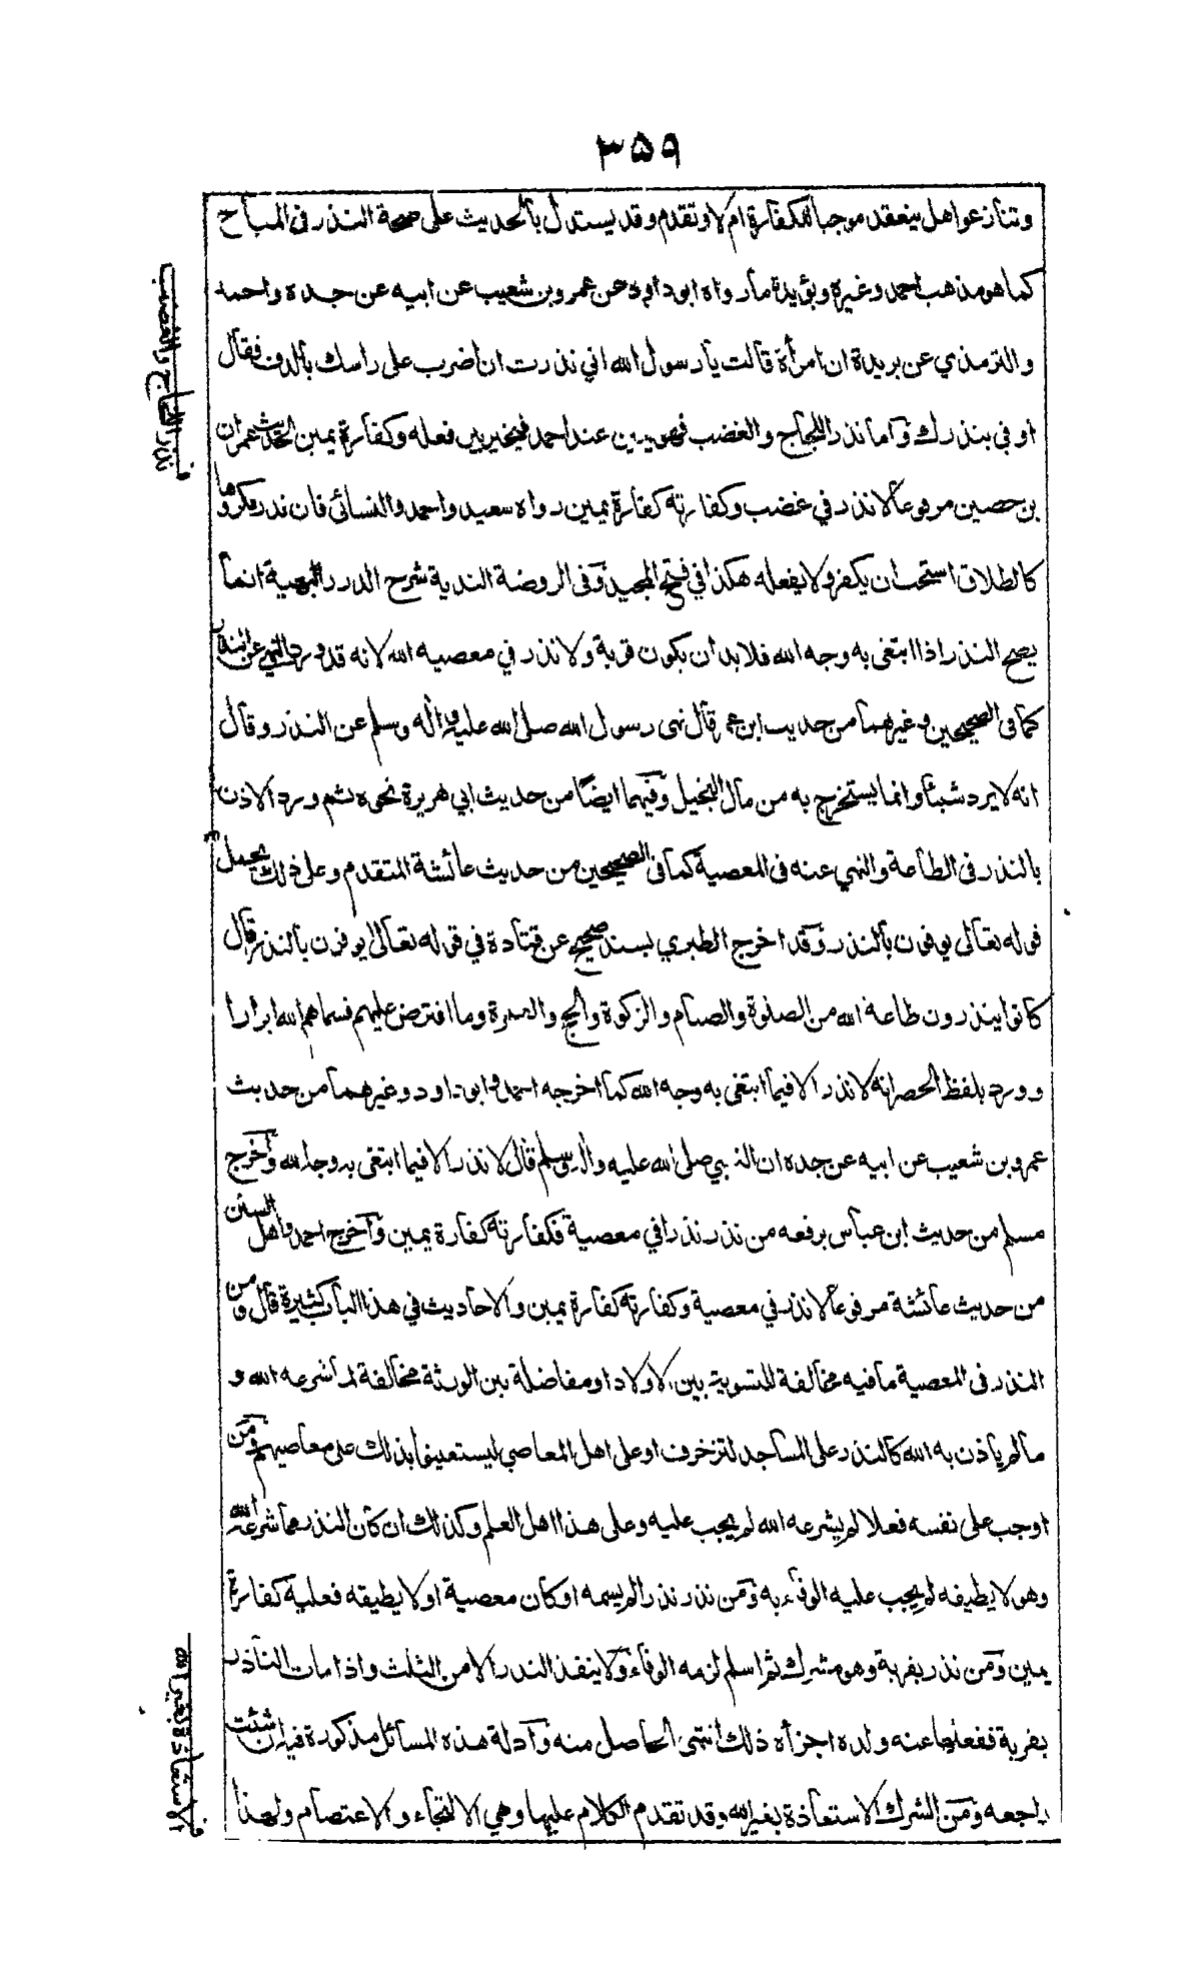 ٣٥٩
وتنازعوا هل ينعقد موجبا للكفارة ام لا وتقدم وقد يستدل بالحديث على صحة النذر فى المباح
كما هو مذهب احمد وغيره ويؤيده ما رواه ابو داود عن عمرو بن شعيب عن ابيه عن جده واحمد
والترمذي عن بريدة ان امرأة قالت يا رسول الله اني نذرت ان اضرب على راسك بالدف فقال
اوفي بنذرك واما نذر اللجاج والغضب فهو يمين عند احمد فيخير بين فعله وكفارة يمين لحديث عمران
بن حصين مرفوعا لا نذر في غضب وكفارته كفارة يمين رواه سعيد واحمد والنسائى فان نذر مكروها
كالطلاق استحب ان يكفر ولا يفعله هكذا في فتح المجيد وفى الروضة الندية شرح الدرر البهية انما
يصح النذر اذا ابتغى به وجه الله فلا بد ان يكون قربة ولا نذر في معصية الله لانه قد ورد النهى عن النذر
كما فى الصحيحين وغيرهما من حديث ابن عمر قال نهى رسول الله صلى الله عليه واله وسلم عن النذر وقال
انه لا يرد شيئا وانما يستخرج به من مال البخيل وفيهما ايضا من حديث ابي هريرة نحوه ثم ورد الاذن
بالنذر فى الطاعة والنهي عنه فى المعصية كما فى الصحيحين من حديث عائشة المتقدم وعلى ذلك يحمل
قوله تعالى يوفون بالنذر وقد اخرج الطبري بسند صحيح عن قتادة في قوله تعالى يوفون بالنذر قال
كانوا ينذرون طاعة الله من الصلوة والصيام والزكوة والحج والعمرة وما افترض عليهم فسماهم الله ابرارا
وورد بلفظ الحصر انه لا نذر الا فيما ابتغى به وجه الله كما اخرجه احمد وابو داود وغيرهما من حديث
عمرو بن شعيب عن ابيه عن جده ان النبي صلى الله عليه واله وسلم قال لا نذر الا فيما ابتغى به وجه الله واخرج
مسلم من حديث ابن عباس يرفعه من نذر نذرا في معصية فكفارته كفارة يمين واخرج احمد واهل السنن
من حديث عائشة مرفوعا لا نذر في معصية وكفارته كفارة يمين والاحاديث في هذا الباب كثيرة قال ومن
النذر فى المعصية ما فيه مخالفة للتسوية بين الاولاد او مفاضلة بين الورثة مخالفة لما شرعه الله و
ما لم ياذن به الله كالنذر على المساجد لتزخرف او على اهل المعاصي ليستعينوا بذلك على معاصيهم ومن
اوجب على نفسه فعلا لم يشرعه الله لم يجب عليه وعلى هذا اهل العلم وكذلك ان كان النذر مما شرعه الله
وهو لا يطيقه لم يجب عليه الوفاء به ومن نذر نذرا لم يسمه او كان معصية او لا يطيقه فعليه كفارة
يمين ومن نذر بقربة وهو مشرك ثم اسلم لزمه الوفاء ولا ينفذ النذر الا من الثلث واذا مات الناذر
بقربة ففعلها عنه ولده اجزأه ذلك انتهى الحاصل منه وادلة هذه المسائل مذكورة فيه ان شئت
راجعه ومن الشرك الاستعاذة بغير الله وقد تقدم الكلام عليها وهي الالتجاء والاعتصام ولهذا
ف نذر اللجاج والغضب
ف الاستعاذة بغير الله